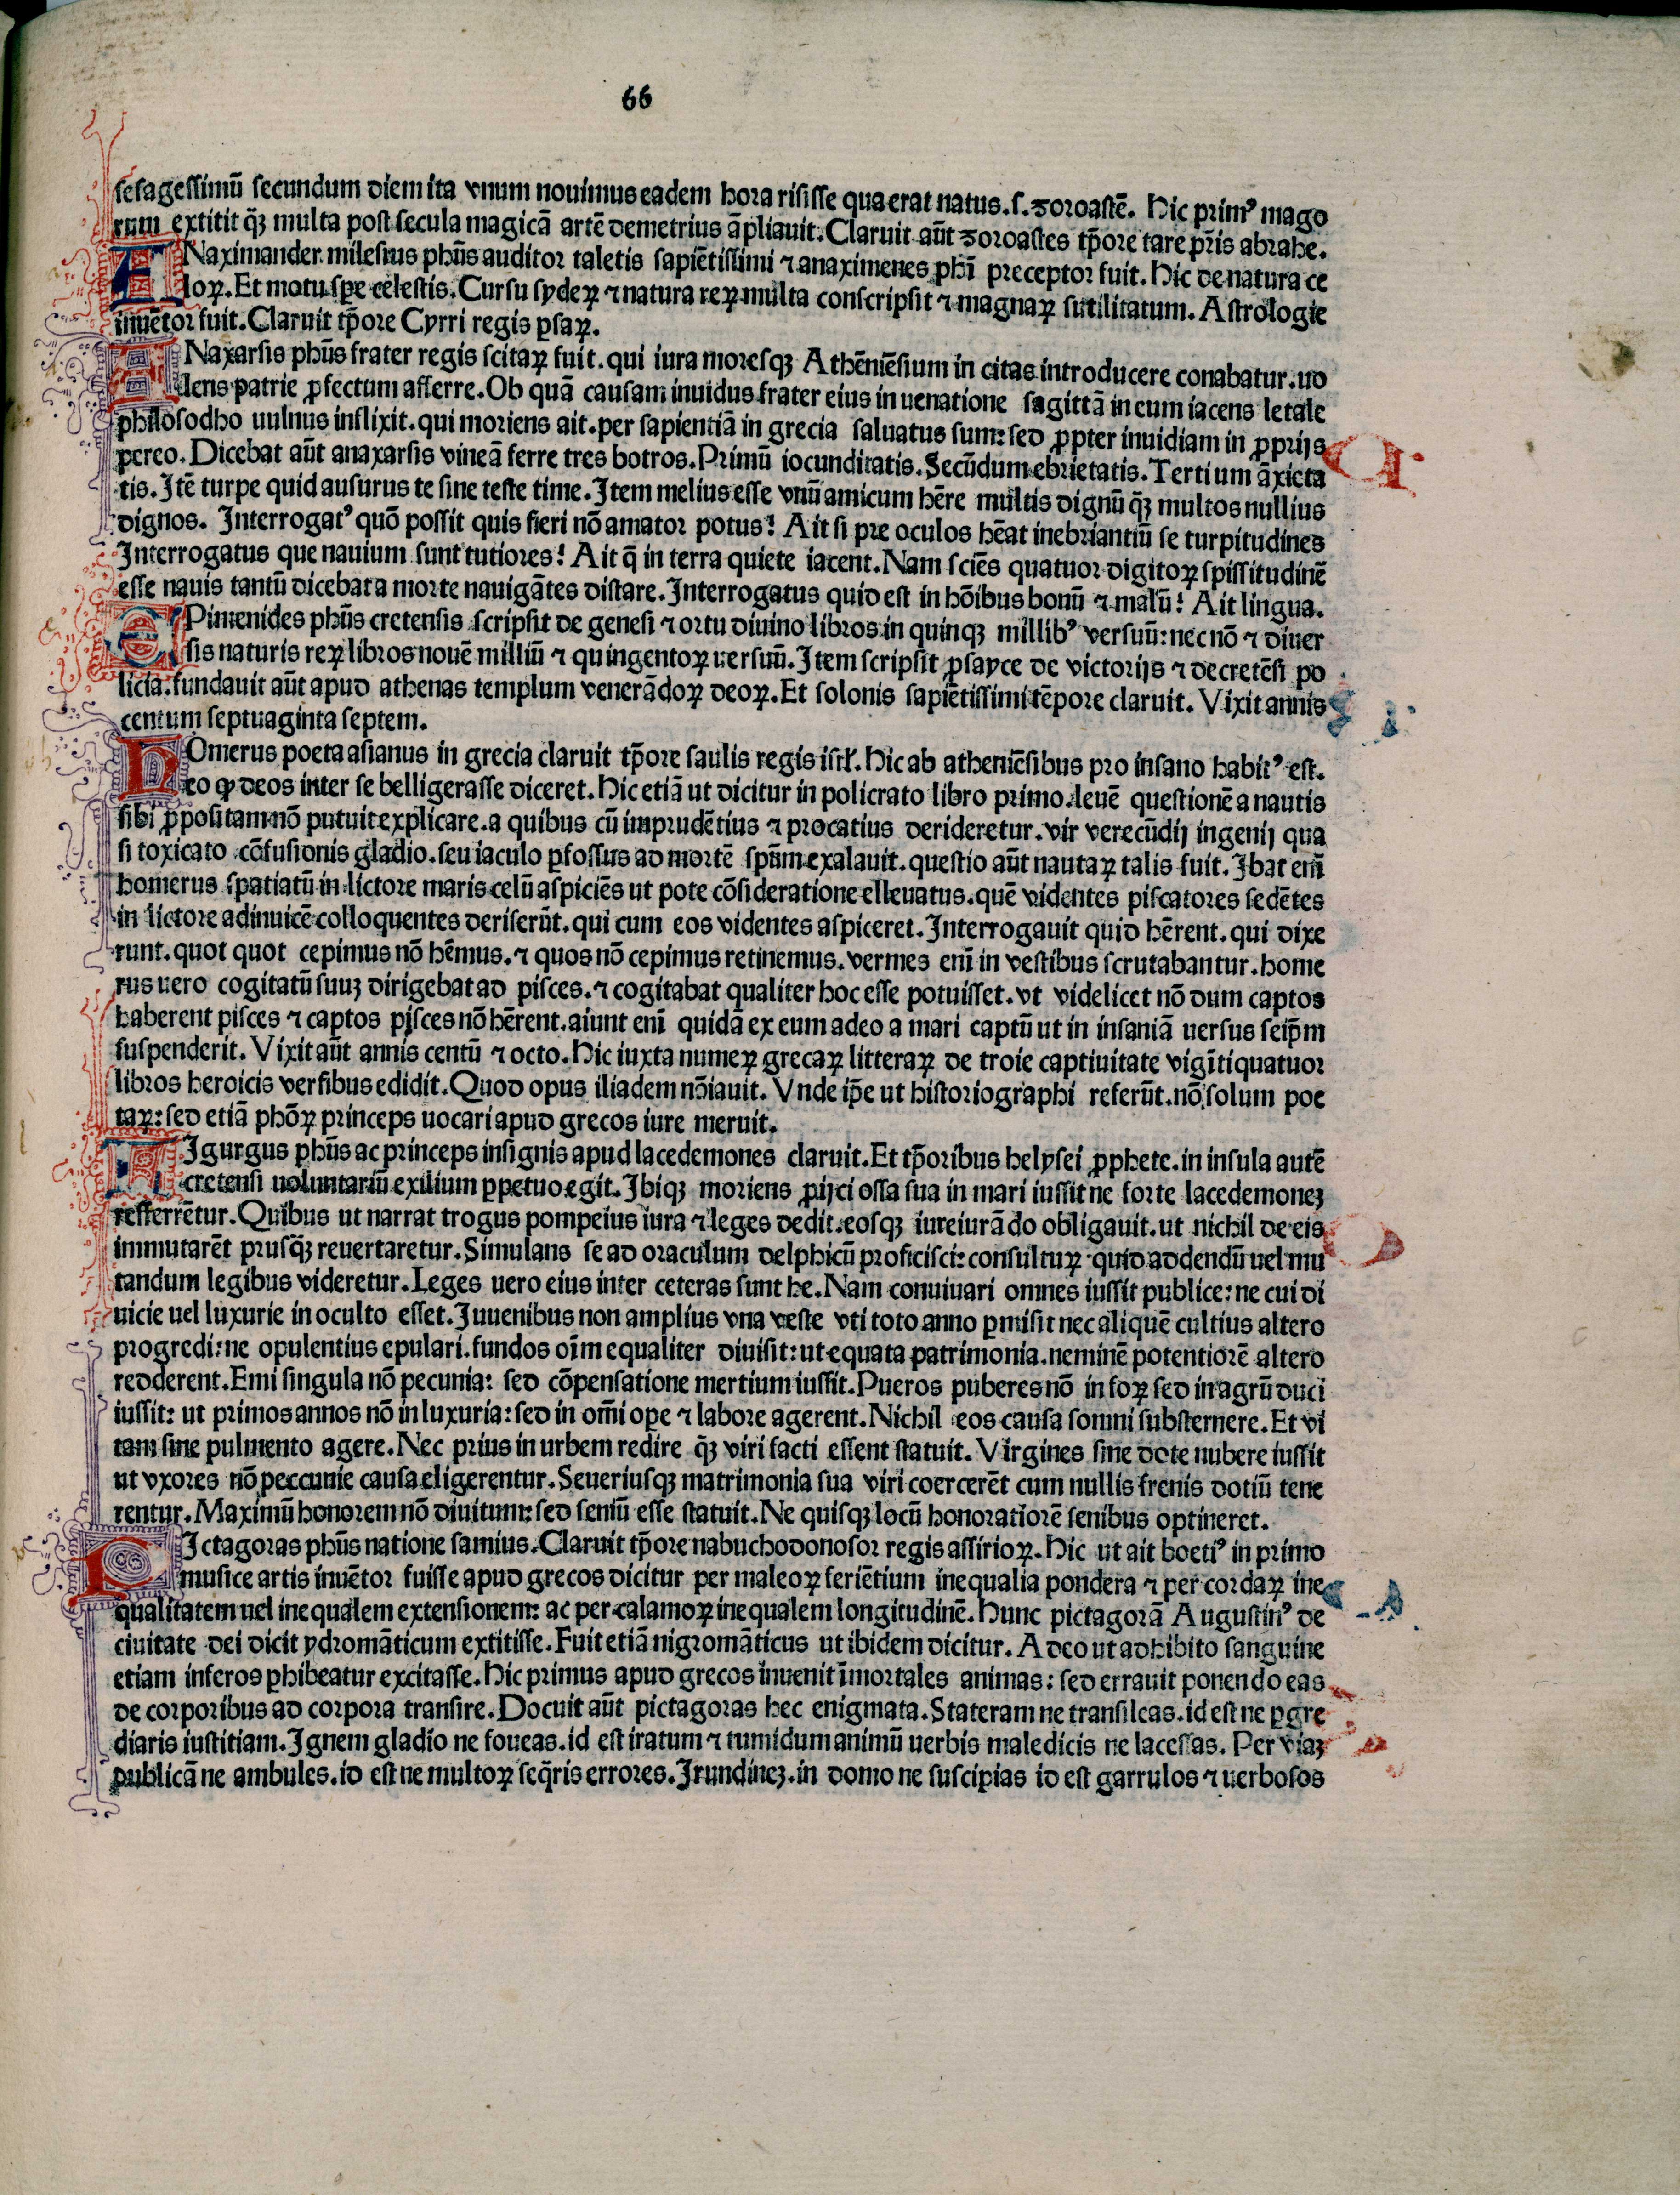 66
sesagessimũ secundum diem ita vnum nouimus eadem hora risisse qua erat natus. s. zoroastẽ. Hic primꝰ mago
rum extitit qȝ̃ multa post secula magicã artẽ demetrius ãpliauit. Claruit aũt zoroastes tp̃ore tare pr̃is abrahe.
ANaximander milesius phũs auditor taletis sapiẽtissimi ⁊ anaximenes phĩ preceptor fuit. Hic de natura ce
loꝝ. Et motu spe celestis. Cursu sydeꝝ ⁊ natura reꝝ multa conscripsit ⁊ magnaꝝ sutilitatum. Astrologie
inuẽtor fuit. Claruit tp̃ore Cyrri regis ꝑsaꝝ.
ANaxarsis phũs frater regis scitaꝝ fuit. qui iura moresqȝ Athẽniẽsium in citas introducere conabatur. uo
lens patrie ꝓfectum afferre. Ob quã causam inuidus frater eius in uenatione sagittã in eum iacens letale
philosodho uulnus inflixit. qui moriens ait. per sapientiã in grecia saluatus sum: sed ꝓpter inuidiam in ꝓprijs
pereo. Dicebat aũt anaxarsis vineã ferre tres botros. Primũ iocunditatis. Secũdum ebrietatis. Tertium ãxieta
tis. Itẽ turpe quid ausurus te sine teste time. Item melius esse vnũ amicum hẽre multis dignũ qȝ̃ multos nullius
dignos. Interrogatꝰ quõ possit quis fieri nõ amator potus? Ait si pre oculos hẽat inebriantiũ se turpitudines
Interrogatus que nauium sunt tutiores? Ait q̃ in terra quiete iacent. Nam sciẽs quatuor digitoꝝ spissitudinẽ
esse nauis tantũ dicebat a morte nauigãtes distare. Interrogatus quid est in hõibus bonũ ⁊ malũ? Ait lingua.
EPimenides phũs cretensis scripsit de genesi ⁊ ortu diuino libros in quinqȝ millibꝰ versuũ: nec nõ ⁊ diuer
sis naturis reꝝ libros nouẽ milliũ ⁊ quingentoꝝ uersuũ. Item scripsit ꝓsayce de victorijs ⁊ de cretẽsi po
licia. fundauit aũt apud athenas templum venerãdoꝝ deoꝝ. Et solonis sapiẽtissimi tẽpore claruit. Vixit annis
centum septuaginta septem.
HOmerus poeta asianus in grecia claruit tp̃ore saulis regis isrł. Hic ab atheniẽsibus pro insano habitꝰ est.
eo ꝙ deos inter se belligerasse diceret. Hic etiã ut dicitur in policrato libro primo. leuẽ questionẽ a nautis
sibi ꝓpositam nõ putuit explicare. a quibus cũ imprudẽtius ⁊ procatius derideretur. vir verecũdij ingenij qua
si toxicato cõfusionis gladio. seu iaculo ꝑfossus ad mortẽ spũm exalauit. questio aũt nautaꝝ talis fuit. Ibat enĩ
homerus spatiatũ in lictore maris celũ aspiciẽs ut pote cõsideratione elleuatus. quẽ videntes piscatores sedẽtes
in lictore adinuicẽ colloquentes deriserũt. qui cum eos videntes aspiceret. Interrogauit quid hẽrent. qui dixe
runt. quot quot cepimus nõ hẽmus. ⁊ quos nõ cepimus retinemus. vermes enĩ in vestibus scrutabantur. home
rus uero cogitatũ suuȝ dirigebat ad pisces. ⁊ cogitabat qualiter hoc esse potuisset. vt videlicet nõ dum captos
haberent pisces ⁊ captos pisces nõ hẽrent. aiunt enĩ quidã ex eum adeo a mari captũ ut in insaniã uersus seip̃m
suspenderit. Vixit aũt annis centũ ⁊ octo. Hic iuxta numeꝝ grecaꝝ litteraꝝ de troie captiuitate vigĩtiquatuor
libros heroicis versibus edidit. Quod opus iliadem nõiauit. Vnde ip̃e ut historiographi referũt. nõ solum poe
taꝝ: sed etiã phõꝝ princeps uocari apud grecos iure meruit.
LIgurgus phũs ac princeps insignis apud lacedemones claruit. Et tp̃oribus helysei ꝓphete. in insula autẽ
cretensi uoluntariũ exilium ꝑpetuo egit. Ibiqȝ moriens ꝓijci ossa sua in mari iussit ne forte lacedemoneȝ
refferrẽtur. Quibus ut narrat trogus pompeius iura ⁊ leges dedit. eosqȝ iureiurãdo obligauit. ut nichil de eis
immutarẽt prusqȝ̃ reuertaretur. Simulans se ad oraculum delphicũ proficisci: consultuꝝ quid addendũ uel mu
tandum legibus videretur. Leges uero eius inter ceteras sunt he. Nam conuiuari omnes iussit publice: ne cui di
uicie uel luxurie in oculto esset. Iuuenibus non amplius vna veste vti toto anno ꝑmisit nec aliquẽ cultius altero
progredi: ne opulentius epulari. fundos oĩm equaliter diuisit: ut equata patrimonia. neminẽ potentiorẽ altero
redderent. Emi singula nõ pecunia: sed cõpensatione mertium iussit. Pueros puberes nõ in foꝝ sed in agrũ duci
iussit: ut primos annos nõ in luxuria: sed in om̃i ope ⁊ labore agerent. Nichil eos causa somni substernere. Et vi
tam sine pulmento agere. Nec prius in urbem redire qȝ̃ viri facti essent statuit. Virgines sine dote nubere iussit
ut vxores nõ peccunie causa eligerentur. Seueriusqȝ matrimonia sua viri coercerẽt cum nullis frenis dotiũ tene
rentur. Maximũ honorem nõ diuitum: sed seniũ esse statuit. Ne quisqȝ locũ honoratiorẽ senibus optineret.
PIctagoras phũs natione samius. Claruit tp̃ore nabuchodonosor regis assirioꝝ. Hic ut ait boetiꝰ in primo
musice artis inuẽtor fuisse apud grecos dicitur per maleoꝝ feriẽtium inequalia pondera ⁊ per cordaꝝ ine
qualitatem uel inequalem extensionem: ac per calamoꝝ inequalem longitudinẽ. Hunc pictagorã Augustinꝰ de
ciuitate dei dicit ydromãticum extitisse. Fuit etiã nigromãticus ut ibidem dicitur. Adeo ut adhibito sanguine
etiam inferos ꝑhibeatur excitasse. Hic primus apud grecos inuenit ĩmortales animas: sed errauit ponendo eas
de corporibus ad corpora transire. Docuit aũt pictagoras hec enigmata. Stateram ne transileas. id est ne ꝑgre
diaris iustitiam. Ignem gladio ne foueas. id est iratum ⁊ tumidum animũ uerbis maledicis ne lacessas. Per viaȝ
publicã ne ambules. id est ne multoꝝ seq̃ris errores. Irundineȝ. in domo ne suscipias id est garrulos ⁊ uerbosos